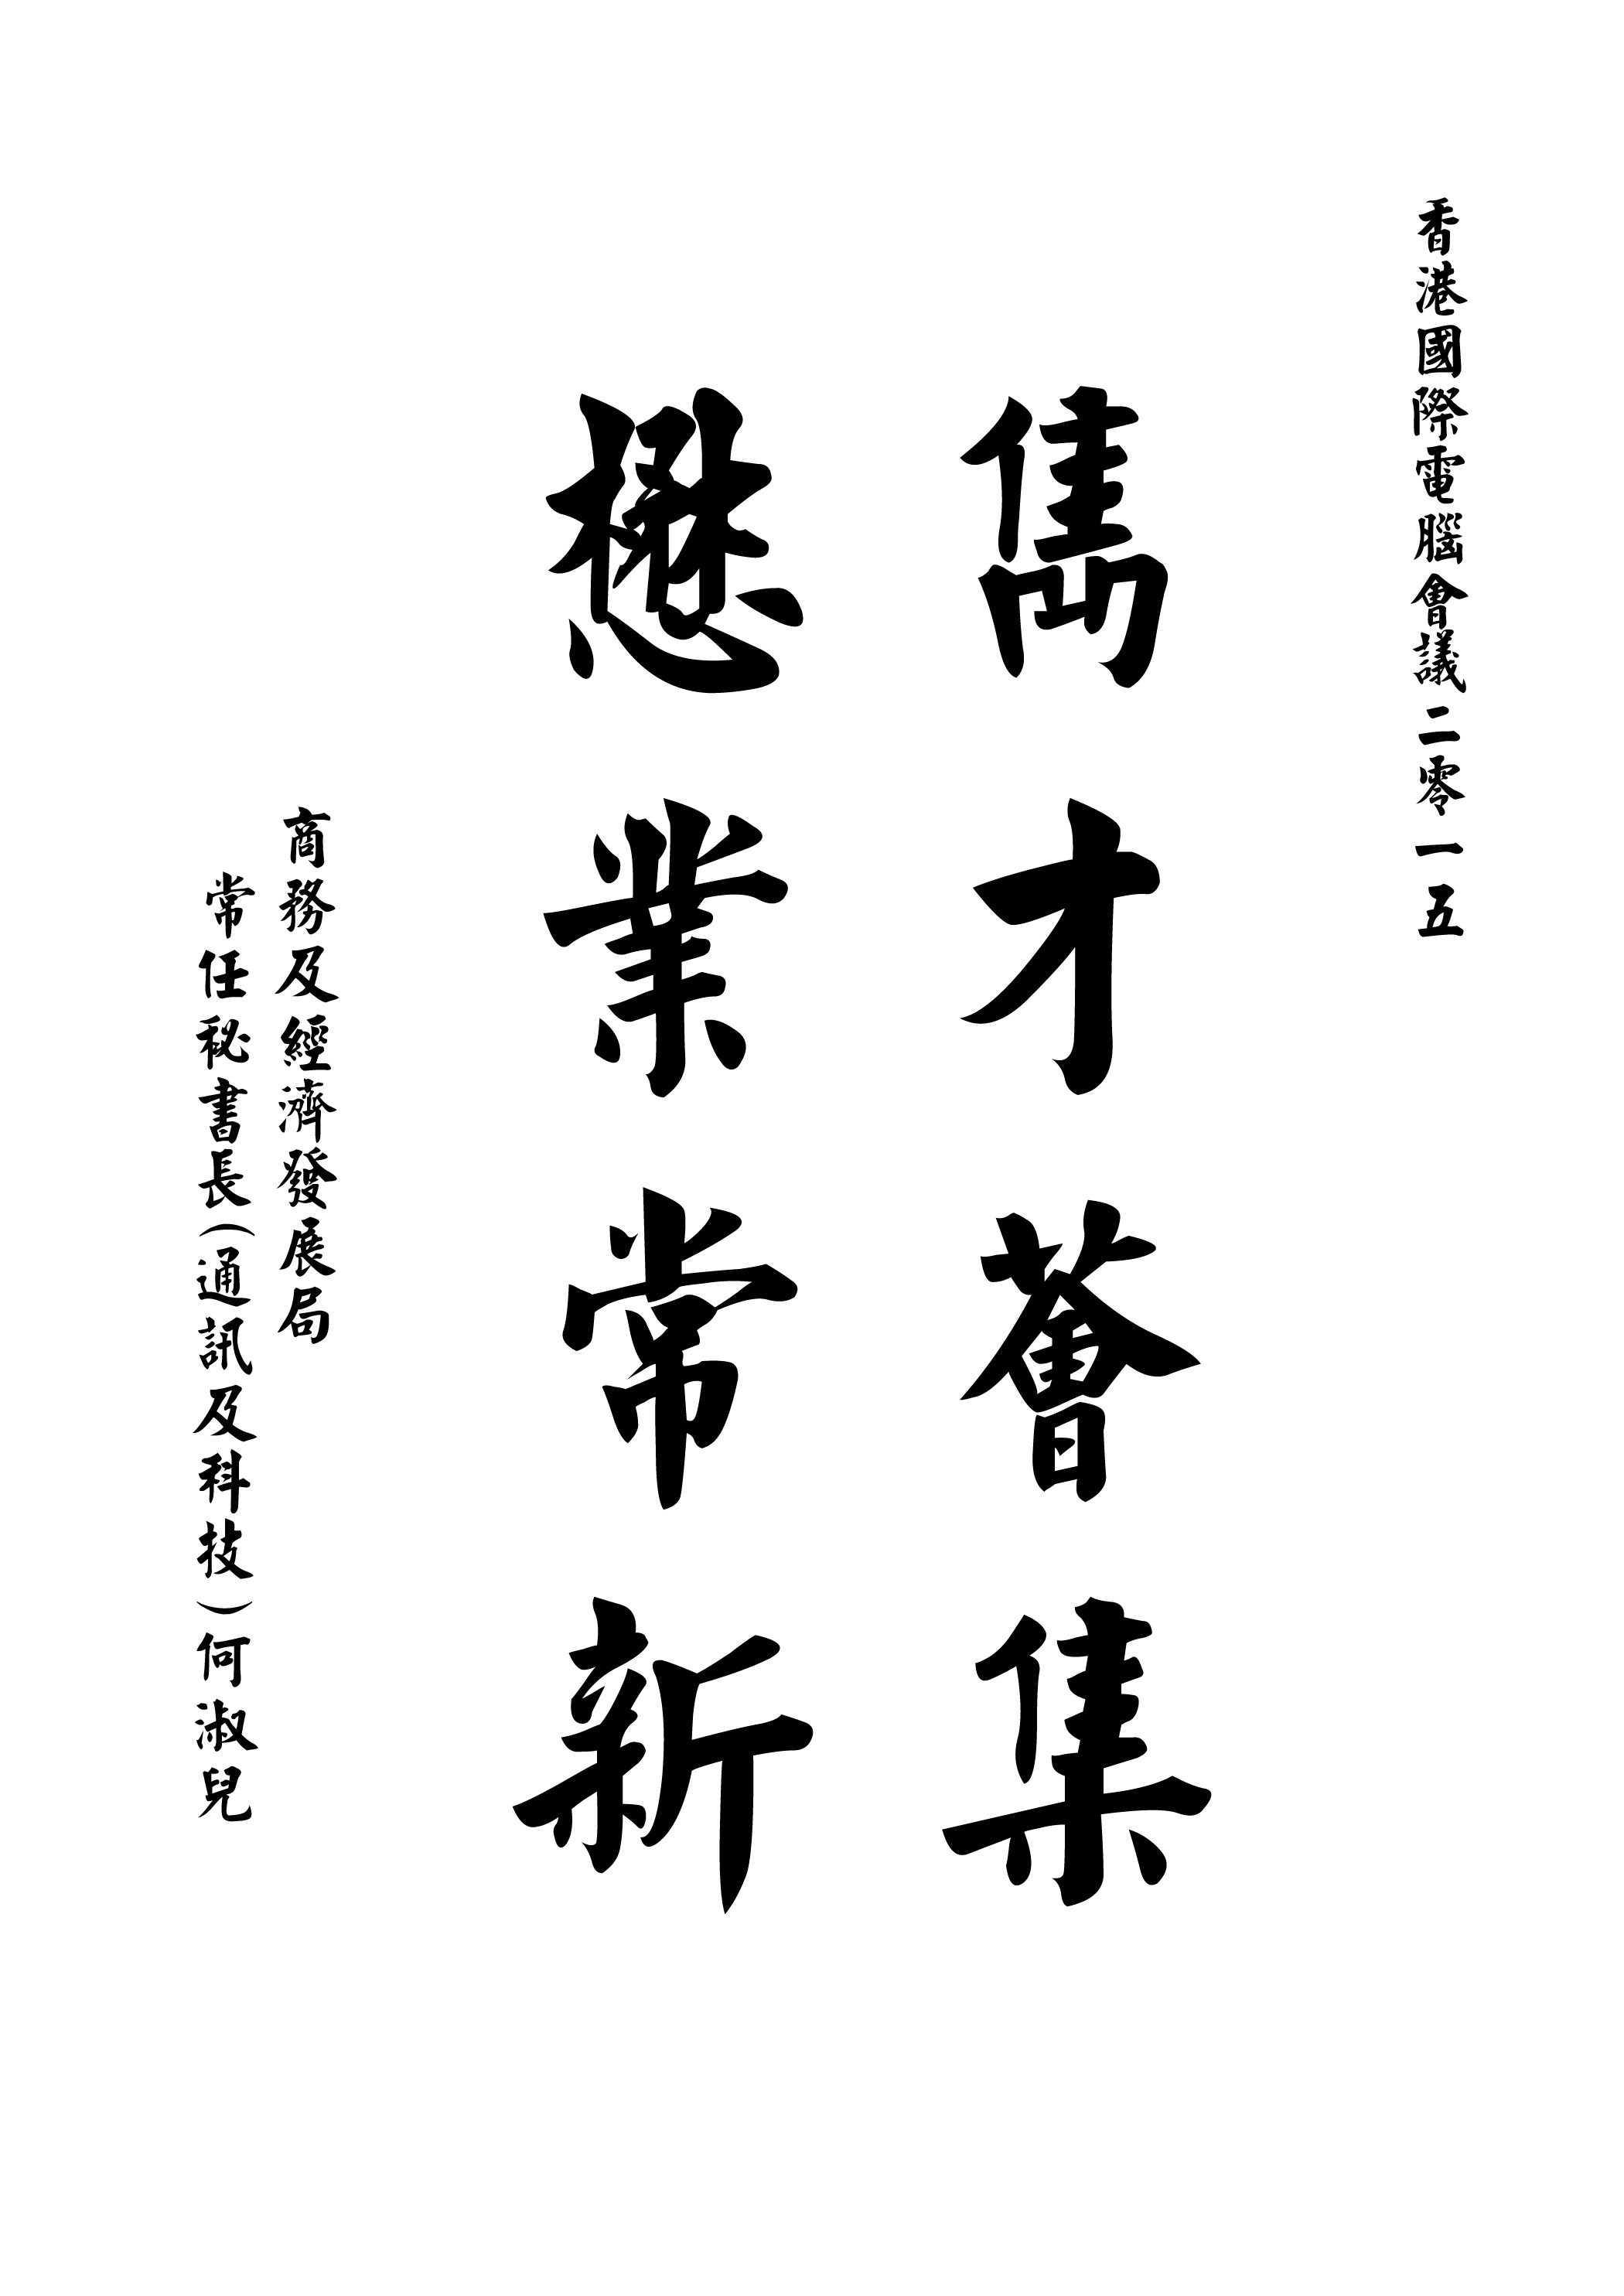 香港國際電腦會議二零一五
雋才薈集
懋業常新
商務及經濟發展局
常任秘書長(通訊及科技)何淑兒